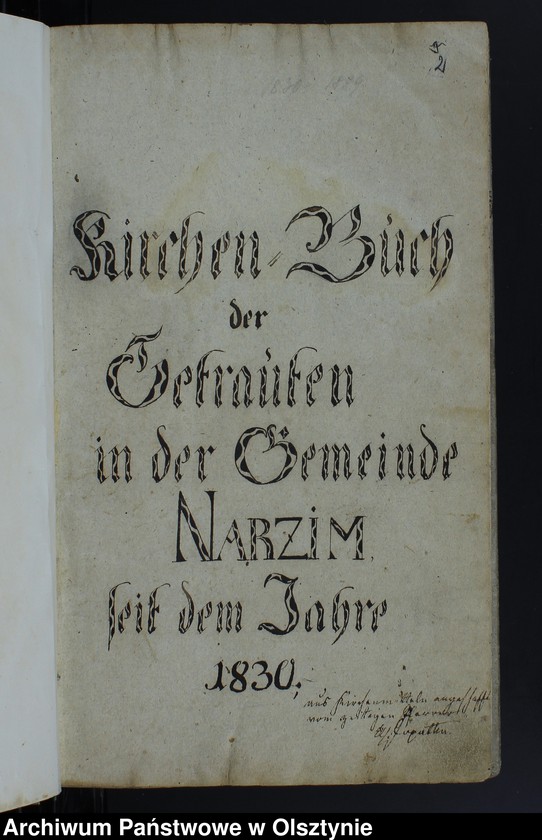 2
Kirchen-Buch
der
Getrauten
in der Gemeinde
NARZIM
seit dem Jahre
1830.
aus Kirchenmitteln angeschafft
vom zeitigen Pfarrer
Archiwum Państwowe w Olsztynie